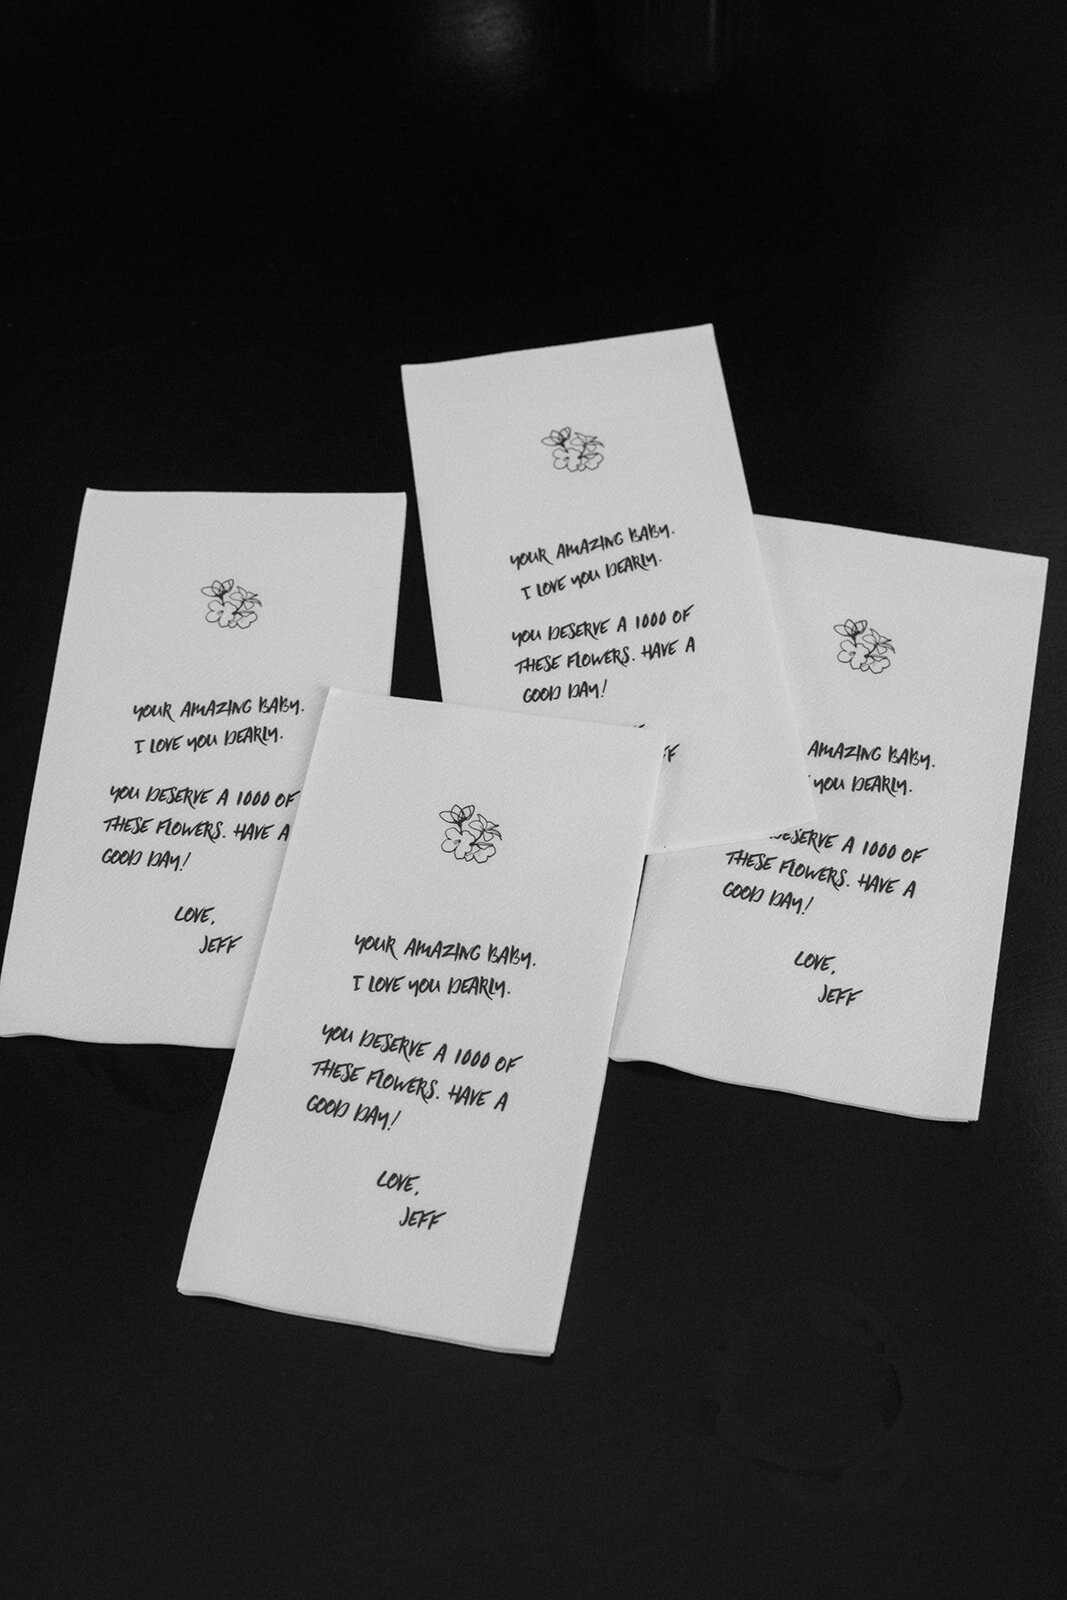 YOUR AMAZING BABY.
I LOVE YOU DEARLY.
YOU DESERVE A 1000 OF
THESE FLOWERS. HAVE A
GOOD DAY!
FF
YOUR AMAZING BABY.
I LOVE YOU DEARLY.
YOU DESERVE A 1000 OF
THESE FLOWERS. HAVE A
GOOD DAY!
LOVE,
JEFF
AMAZING BABY.
YOU DEARLY.
DESERVE A 1000 OF
THESE FLOWERS. HAVE A
GOOD DAY!
LOVE,
JEFF
YOUR AMAZING BABY.
I LOVE YOU DEARLY.
YOU DESERVE A 1000 OF
THESE FLOWERS. HAVE A
GOOD DAY!
LOVE,
JEFF